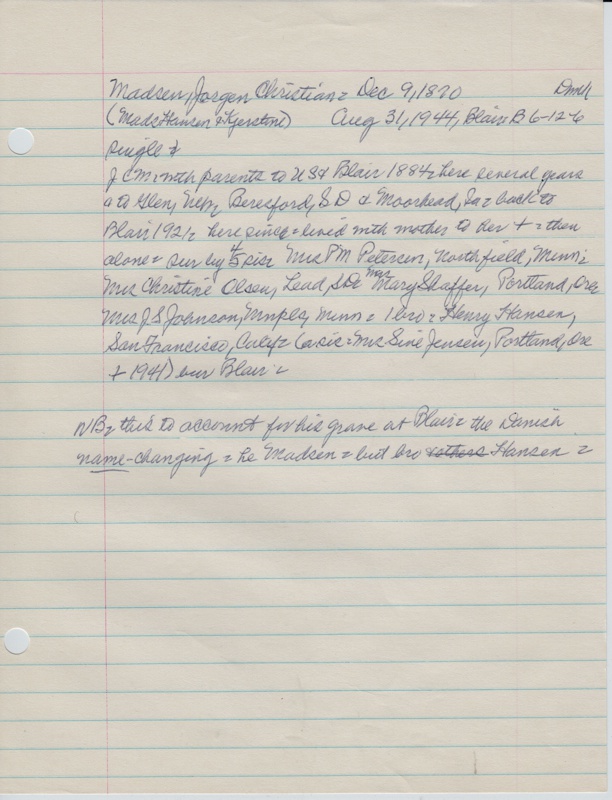 Madsen, Jorgen Christian = Dec 9, 1870 Dmk
(Mads Hansen & Kjerstine) Aug 31, 1944, Blair B 6-12-6
single &
J C M = with parents to US & Blair 1884, here several years
a to Beresford, S D & Moorhead, Ia = back to
Blair 1921 = here since = lived with mother to her + = then
alone = sur by 4 sis = Mrs P M Petersen, Northfield, Minn;
Mrs Christine Olsen, Lead, SD; Mrs Mary Shaffer, Portland, Ore
Mrs J S Johnson, Mnpls, Minn = 1 bro = Henry Hansen,
San Francisco, Calif = (a sis = Mrs Sine Jensen, Portland, Ore
+ 1941) bur Blair =
NB = this to account for his grave at Blair = the Danish
name-changing = he Madsen = but bro Hansen =